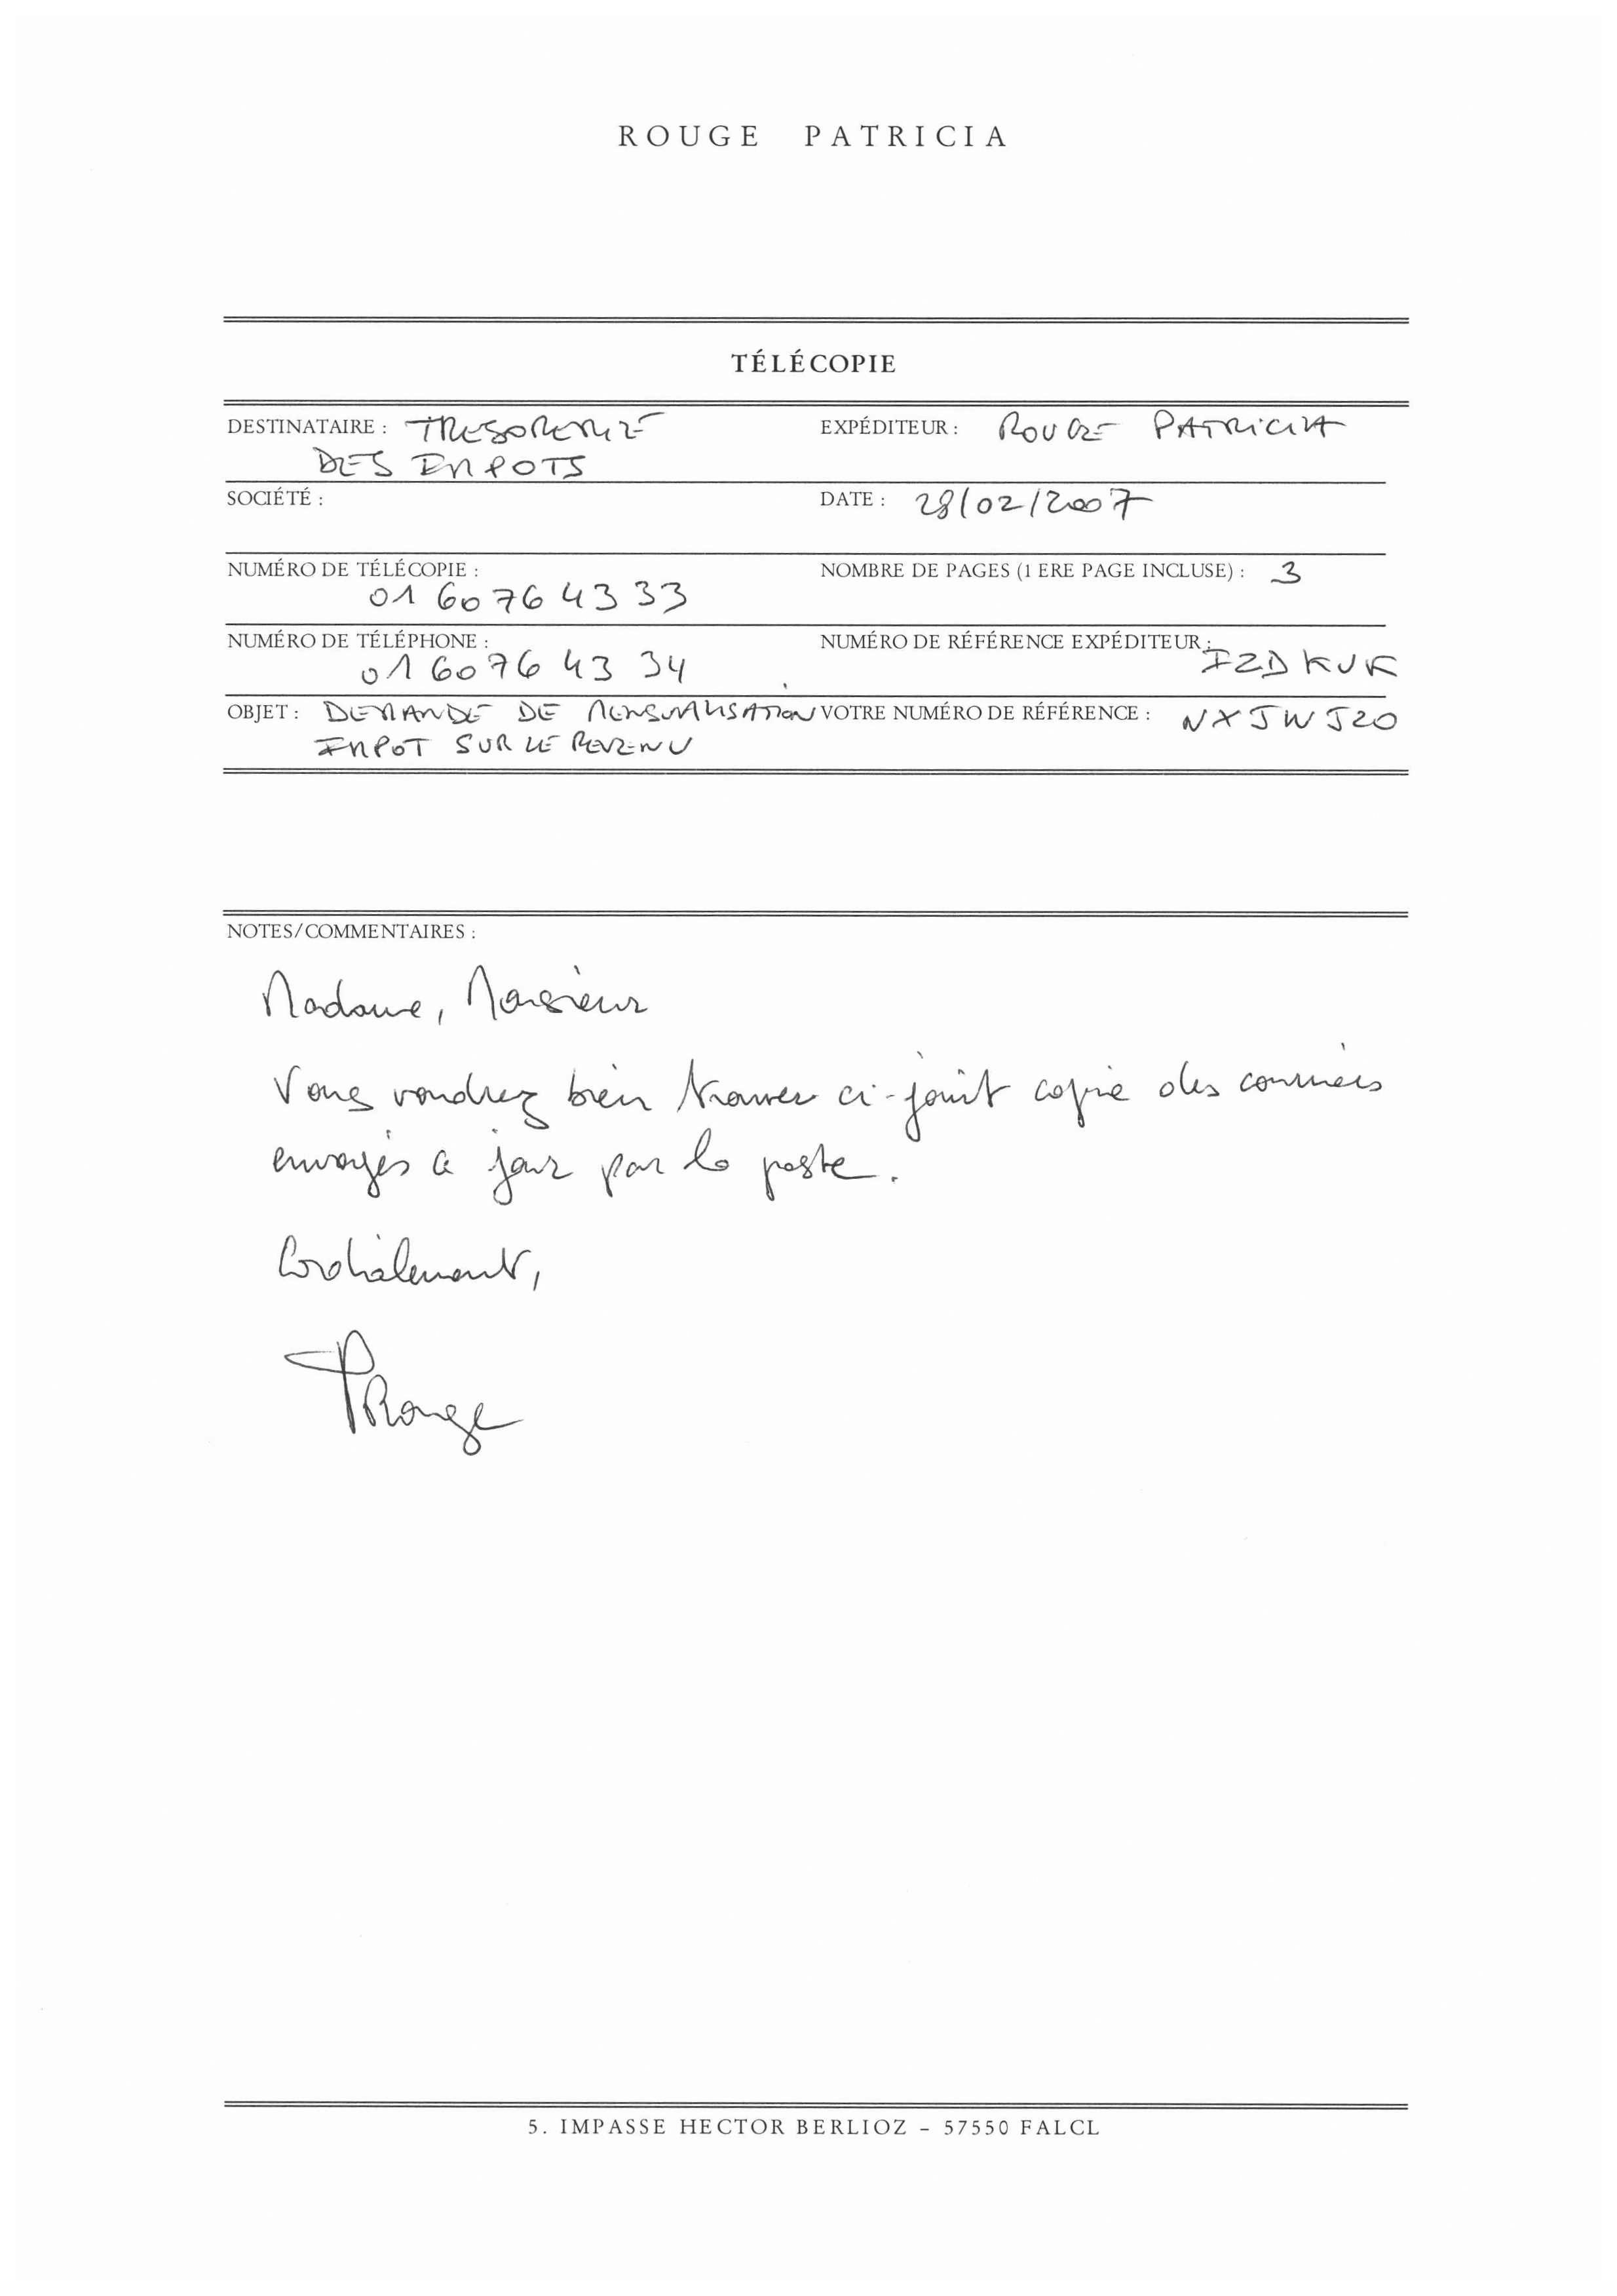 ROUGE PATRICIA
TÉLÉCOPIE
DESTINATAIRE : TRESORERIE
DES IMPOTS
EXPÉDITEUR : ROUGE PATRICIA
SOCIÉTÉ :
DATE : 28/02/2007
NUMÉRO DE TÉLÉCOPIE :
01 60 76 43 33
NOMBRE DE PAGES (1 ERE PAGE INCLUSE) : 3
NUMÉRO DE TÉLÉPHONE :
01 60 76 43 34
NUMÉRO DE RÉFÉRENCE EXPÉDITEUR :
IZDKUK
OBJET : DEMANDE DE MENSUALISATION
IMPOT SUR LE REVENU
VOTRE NUMÉRO DE RÉFÉRENCE : NXJWJ20
NOTES/COMMENTAIRES :
Madame, Monsieur
Vous voudrez bien trouver ci-joint copie des courriers
envoyés a jour par la poste.
Cordialement,
PRouge
5. IMPASSE HECTOR BERLIOZ – 57550 FALCL